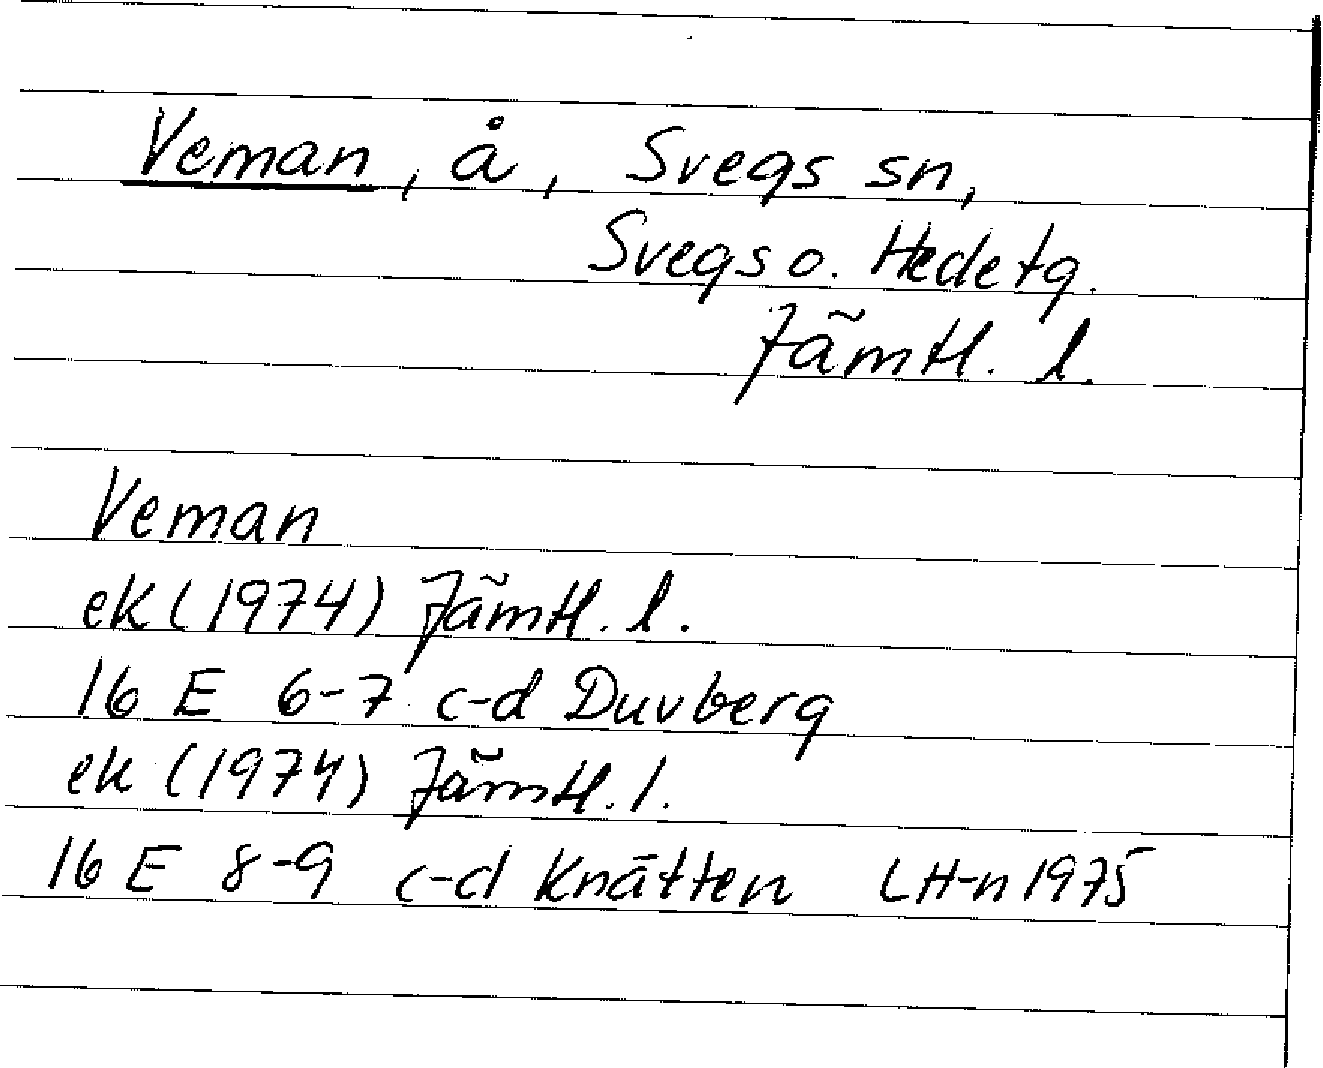 Veman, å, Svegs sn,
Svegs o. Hede tg.
Jämtl. l.
Veman
ek (1974) Jämtl. l.
16 E 6-7 c-d Duvberg
ek (1974) Jämtl. l.
16 E 8-9 c-d Knätten LH-n 1975